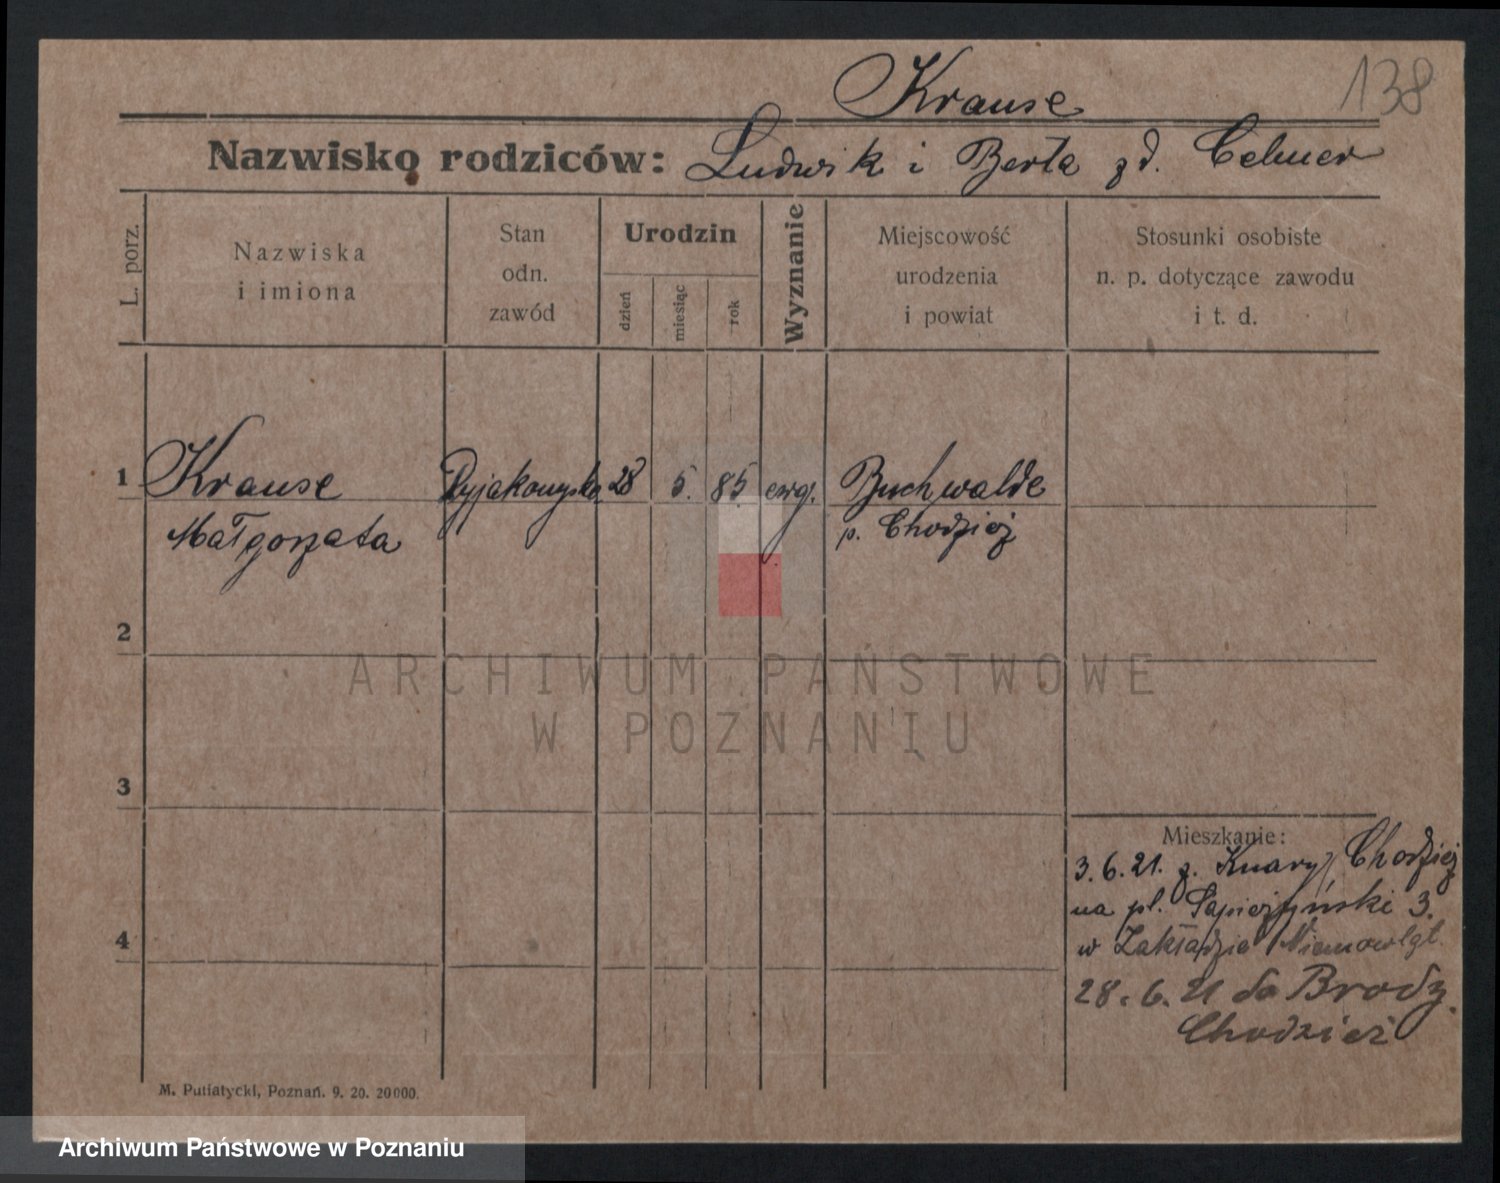 138
Krause
Nazwisko rodziców: Ludwik i Berta zd. Celmer
L. porz.
Nazwiska
i imiona
Stan
odn.
zawód
Urodzin
dzień
miesiąc
rok
Wyznanie
Miejscowość
urodzenia
i powiat
Stosunki osobiste
n. p. dotyczące zawodu
i t. d.
1 Krause 28 5. 85 ewg. Buchwalde
Małgorzata p. Chodzież
2
3
4
Mieszkanie:
3.6.21. z. Chodzież
na pl. 3.
w Zakładzie Niemowląt.
28.6.21 do Brody.
Chodzież
M. Putiatycki, Poznań. 9. 20. 20000.
ARCHIWUM PAŃSTWOWE
W POZNANIU
Archiwum Państwowe w Poznaniu